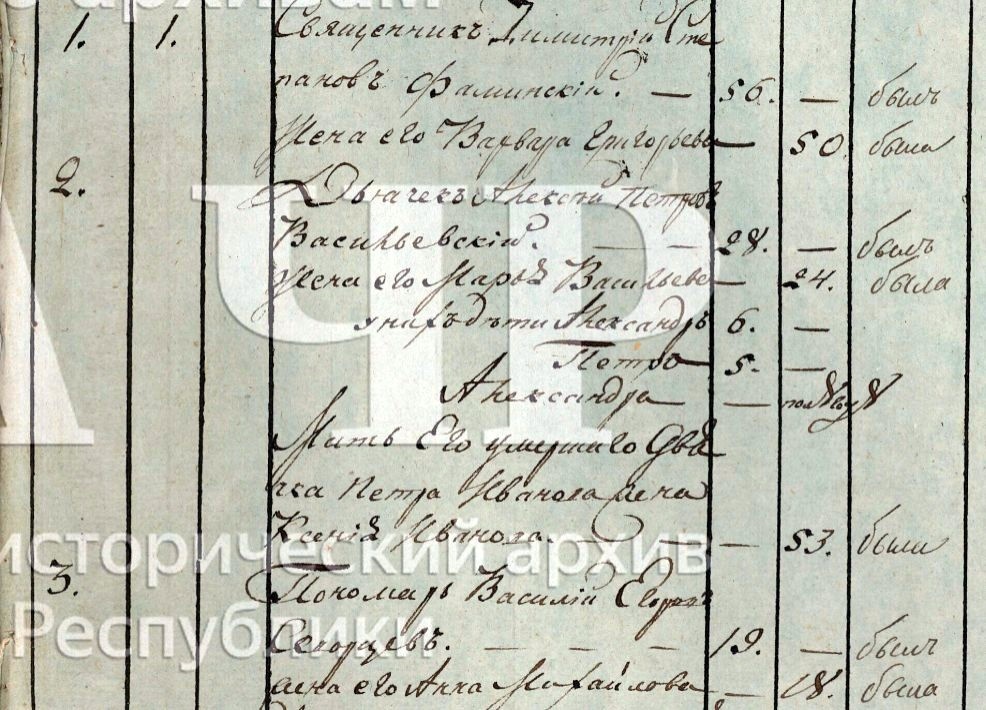 1. 1. Священникъ Димитрій Сте
пановъ Фаминскій. — 56. — былъ
Жена его Варвара Григорьева — 50. была
2. Дьячекъ Алексѣй Петровъ
Васильевскій. — — 28. — былъ
Жена его Марья Васильева — 24. была
у нихъ дѣти Александръ 6. —
Петръ 5. —
Александра —
Мать Его умершаго Дья
чка Петра Иванова жена
Ксенія Иванова. — — 53. была
3. Пономарь Василій Егоровъ
— — — 19. — былъ
жена его Анна Михайлова — 18. была
исторический архив
Республики